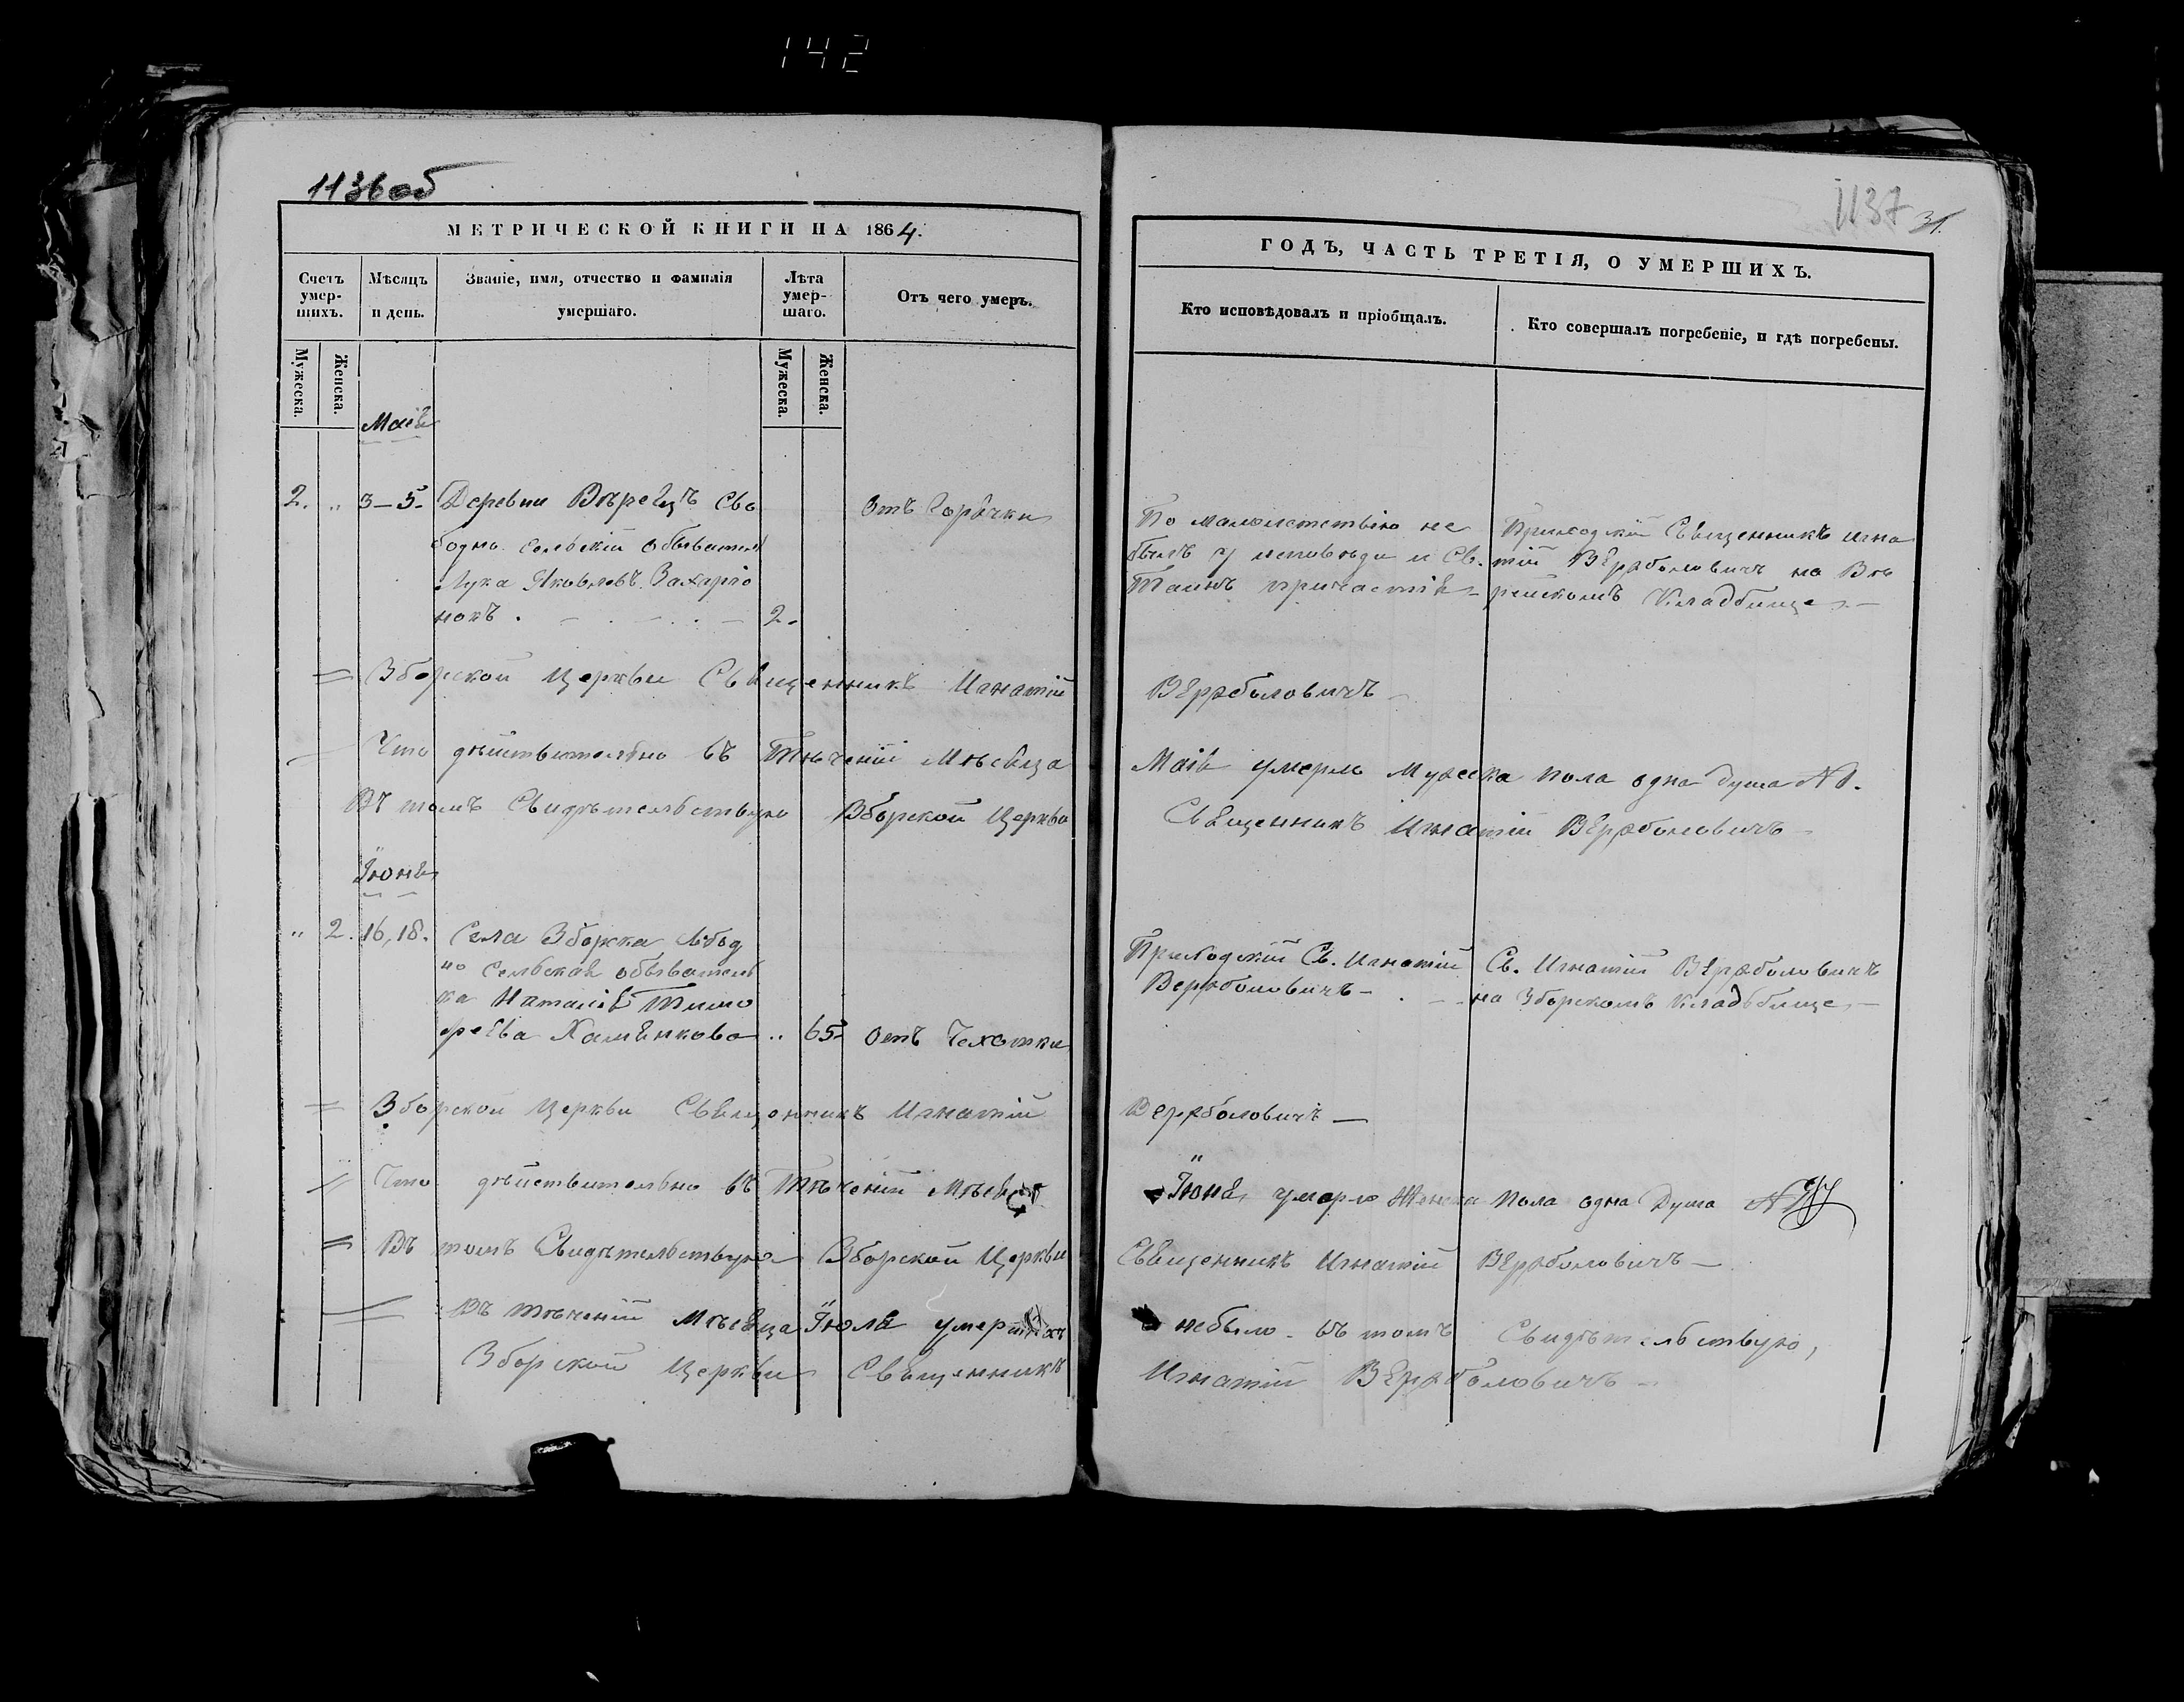 142
1136 об
1137 31.
МЕТРИЧЕСКОЙ КНИГИ НА 1864.
ГОДЪ, ЧАСТЬ ТРЕТІЯ, О УМЕРШИХЪ.
Счетъ умер-шихъ.
Мѣсяцъ и день.
Званіе, имя, отчество и фамилія умершаго.
Лѣта умер-шаго.
Отъ чего умеръ.
Кто исповѣдовалъ и пріобщалъ.
Кто совершалъ погребеніе, и гдѣ погребены.
Мужеска.
Женска.
Мужеска.
Женска.
Маія
2. " 3-5. Деревни Вѣрейцъ Сво
бодно сельскій обыватель
Лука Яковлевъ Захаріо
нокъ. 2.
Отъ Горячки
По малолетствію не
былъ у исповѣди и Св.
Таинъ причастія
Приходскій Священникъ Игна
тій Вержболовичъ на Вѣ
рейскомъ Кладбище
Зборской Церкви Священникъ Игнатій Вержболовичъ
Что дѣйствительно въ Тѣченіи Мѣсяца Маія умерло Мужеска пола одна душа
Въ томъ Свидѣтельствую Зборской Церкви Священникъ Игнатій Вержболовичъ
Іюня
" 2. 16, 18. Села Зборска Свобод
но Сельская обыватель
ка Наталія Тимо
феева Хаменкова " 65 отъ Чахотки
Приходскій Св. Игнатій
Вержболовичъ
Св. Игнатій Вержболовичъ
на Зборскомъ Кладбище
Зборской Церкви Священникъ Игнатій Вержболовичъ
Что дѣйствительно въ Тѣченіи Мѣсяца Іюня умерло Женска пола одна Душа
Въ томъ Свидѣтельствую Зборской Церкви Священникъ Игнатій Вержболовичъ
Въ тѣченіи Мѣсяца Іюля умершихъ небыло въ томъ Свидѣтельствую,
Зборской Церкви Священникъ Игнатій Вержболовичъ